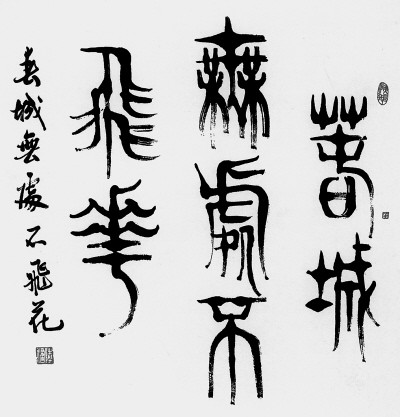 春城
無處不
飛華
春城無處不飛花